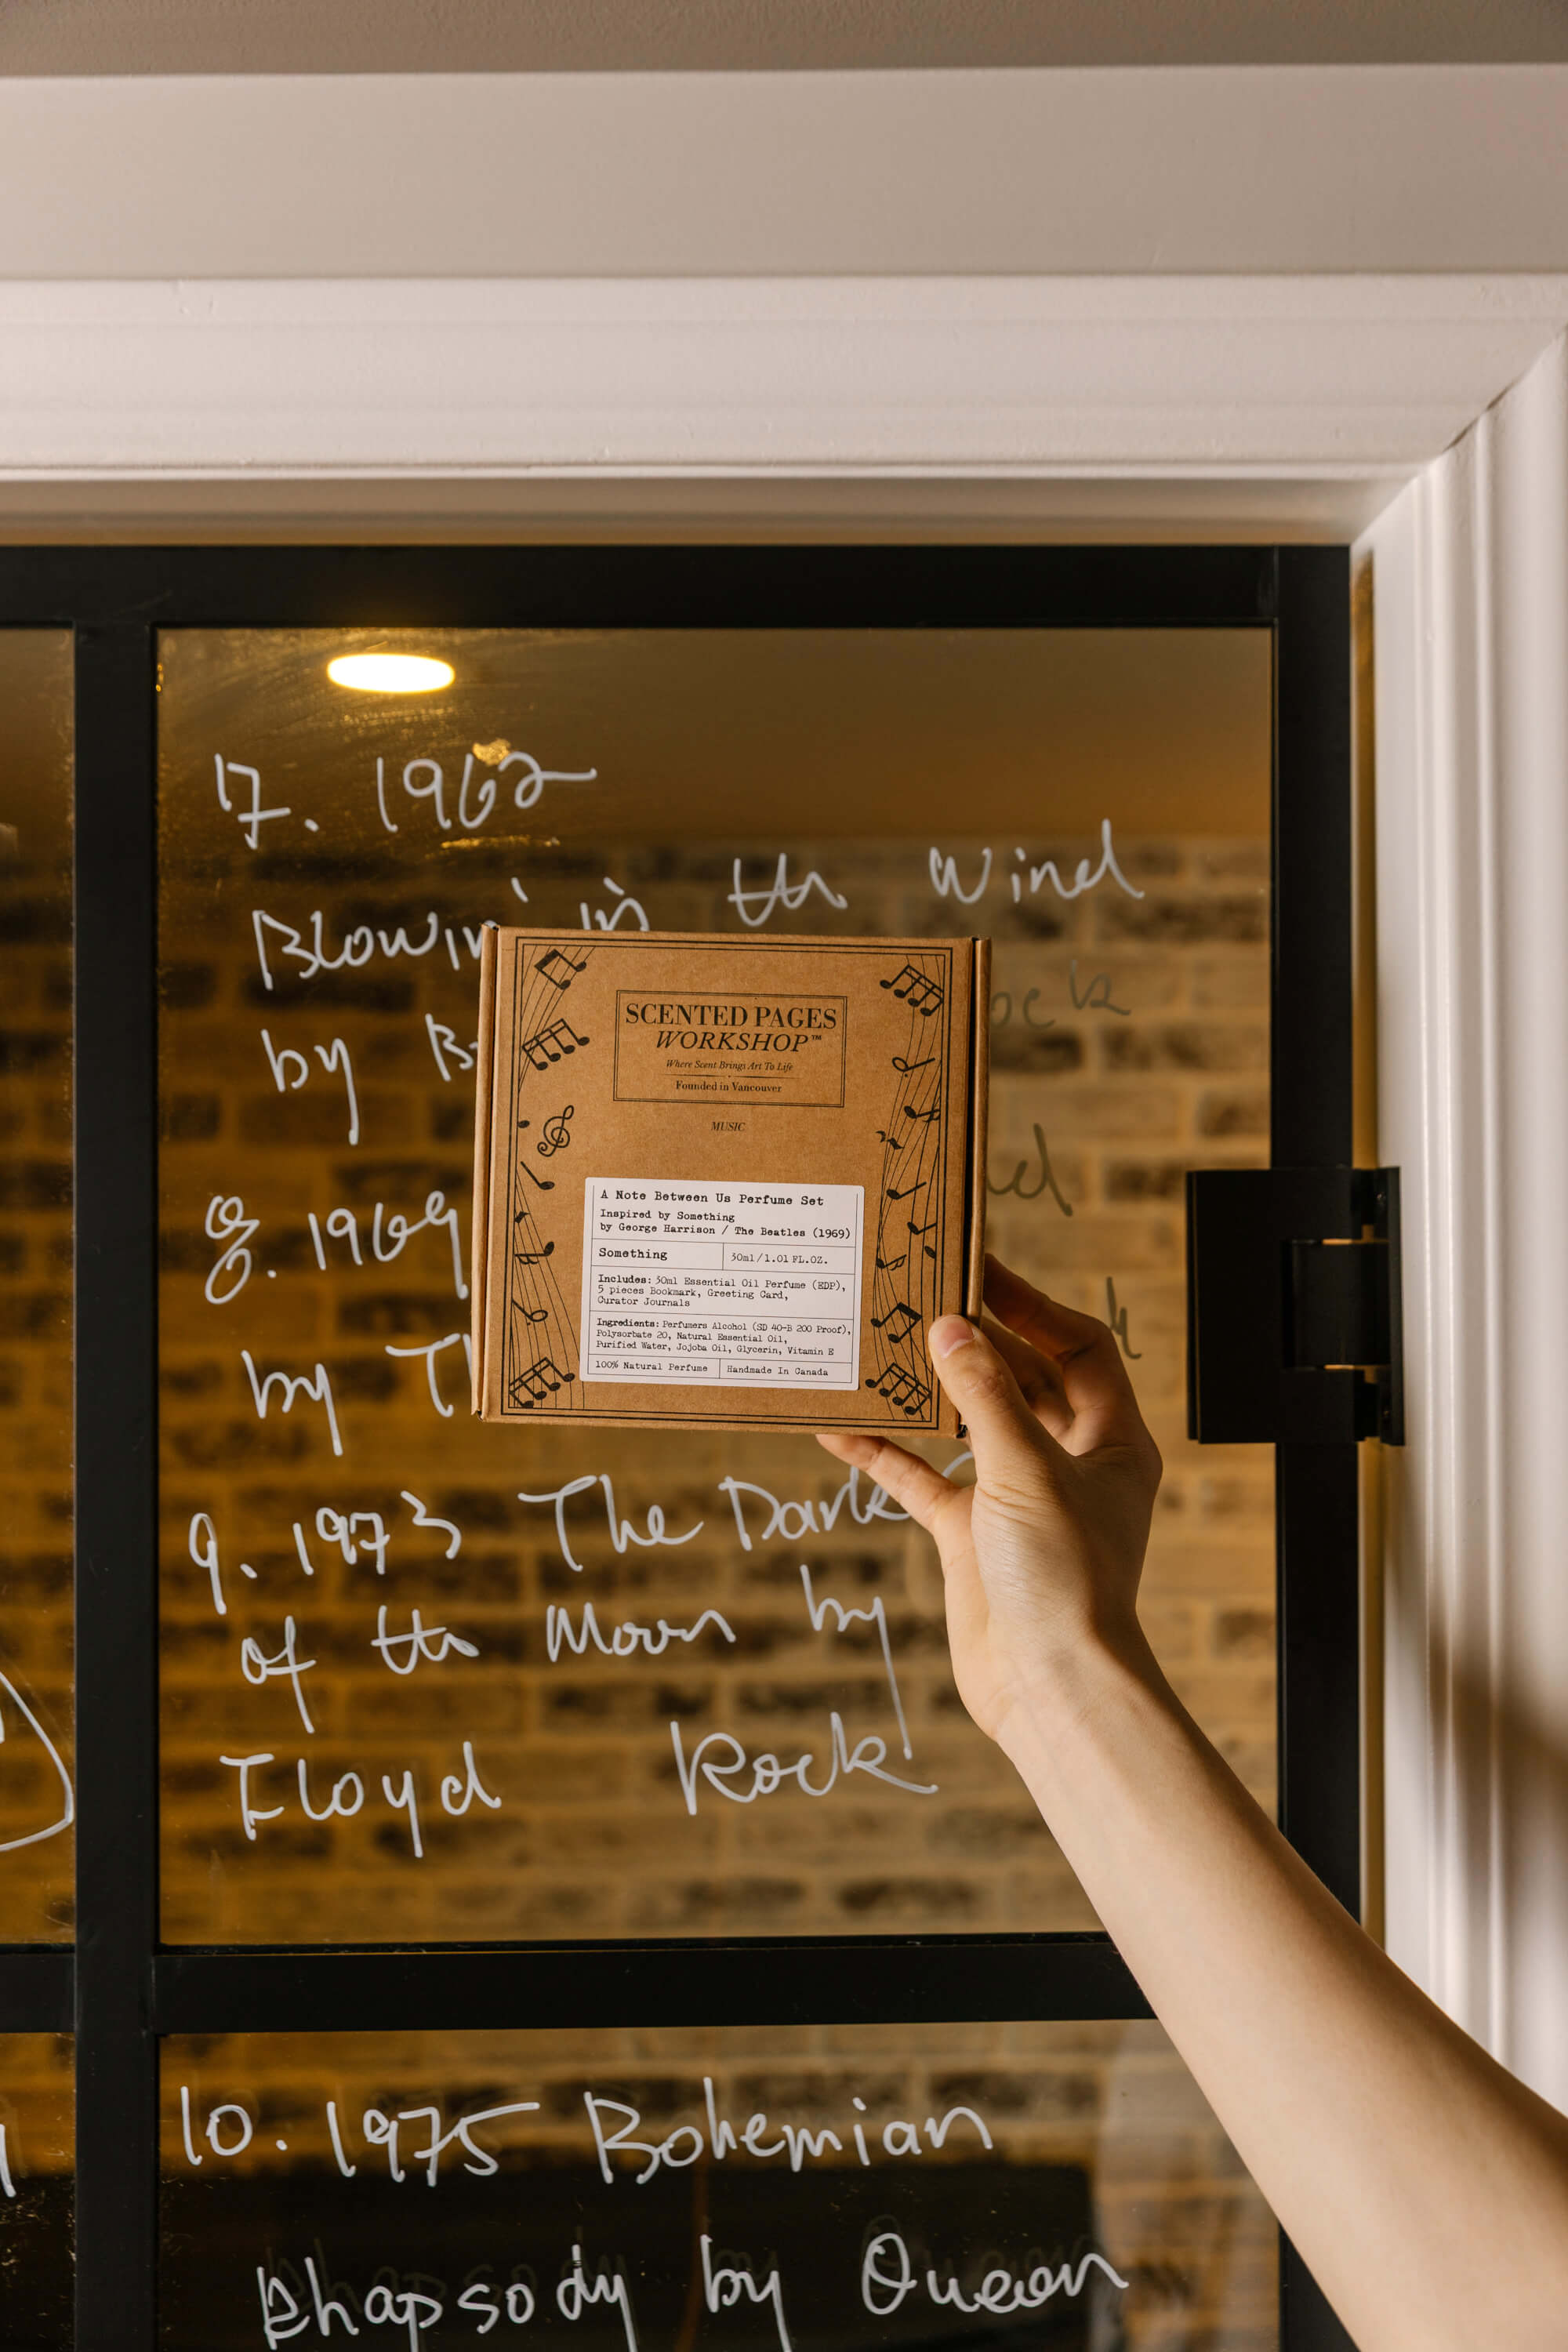 7. 1962
Blowin' in the Wind
by B
8. 1969
by Th
9. 1973 The Dark
of the Moon by
Floyd Rock
10. 1975 Bohemian
Rhapsody by Queen
SCENTED PAGES
WORKSHOP™
Where Scent Brings Art To Life
Founded in Vancouver
MUSIC
A Note Between Us Perfume Set
Inspired by Something
by George Harrison / The Beatles (1969)
Something 30ml/1.01 FL.OZ.
Includes: 30ml Essential Oil Perfume (EDP),
5 pieces Bookmark, Greeting Card,
Curator Journals
Ingredients: Perfumers Alcohol (SD 40-B 200 Proof),
Polysorbate 20, Natural Essential Oil,
Purified Water, Jojoba Oil, Glycerin, Vitamin E
100% Natural Perfume Handmade In Canada